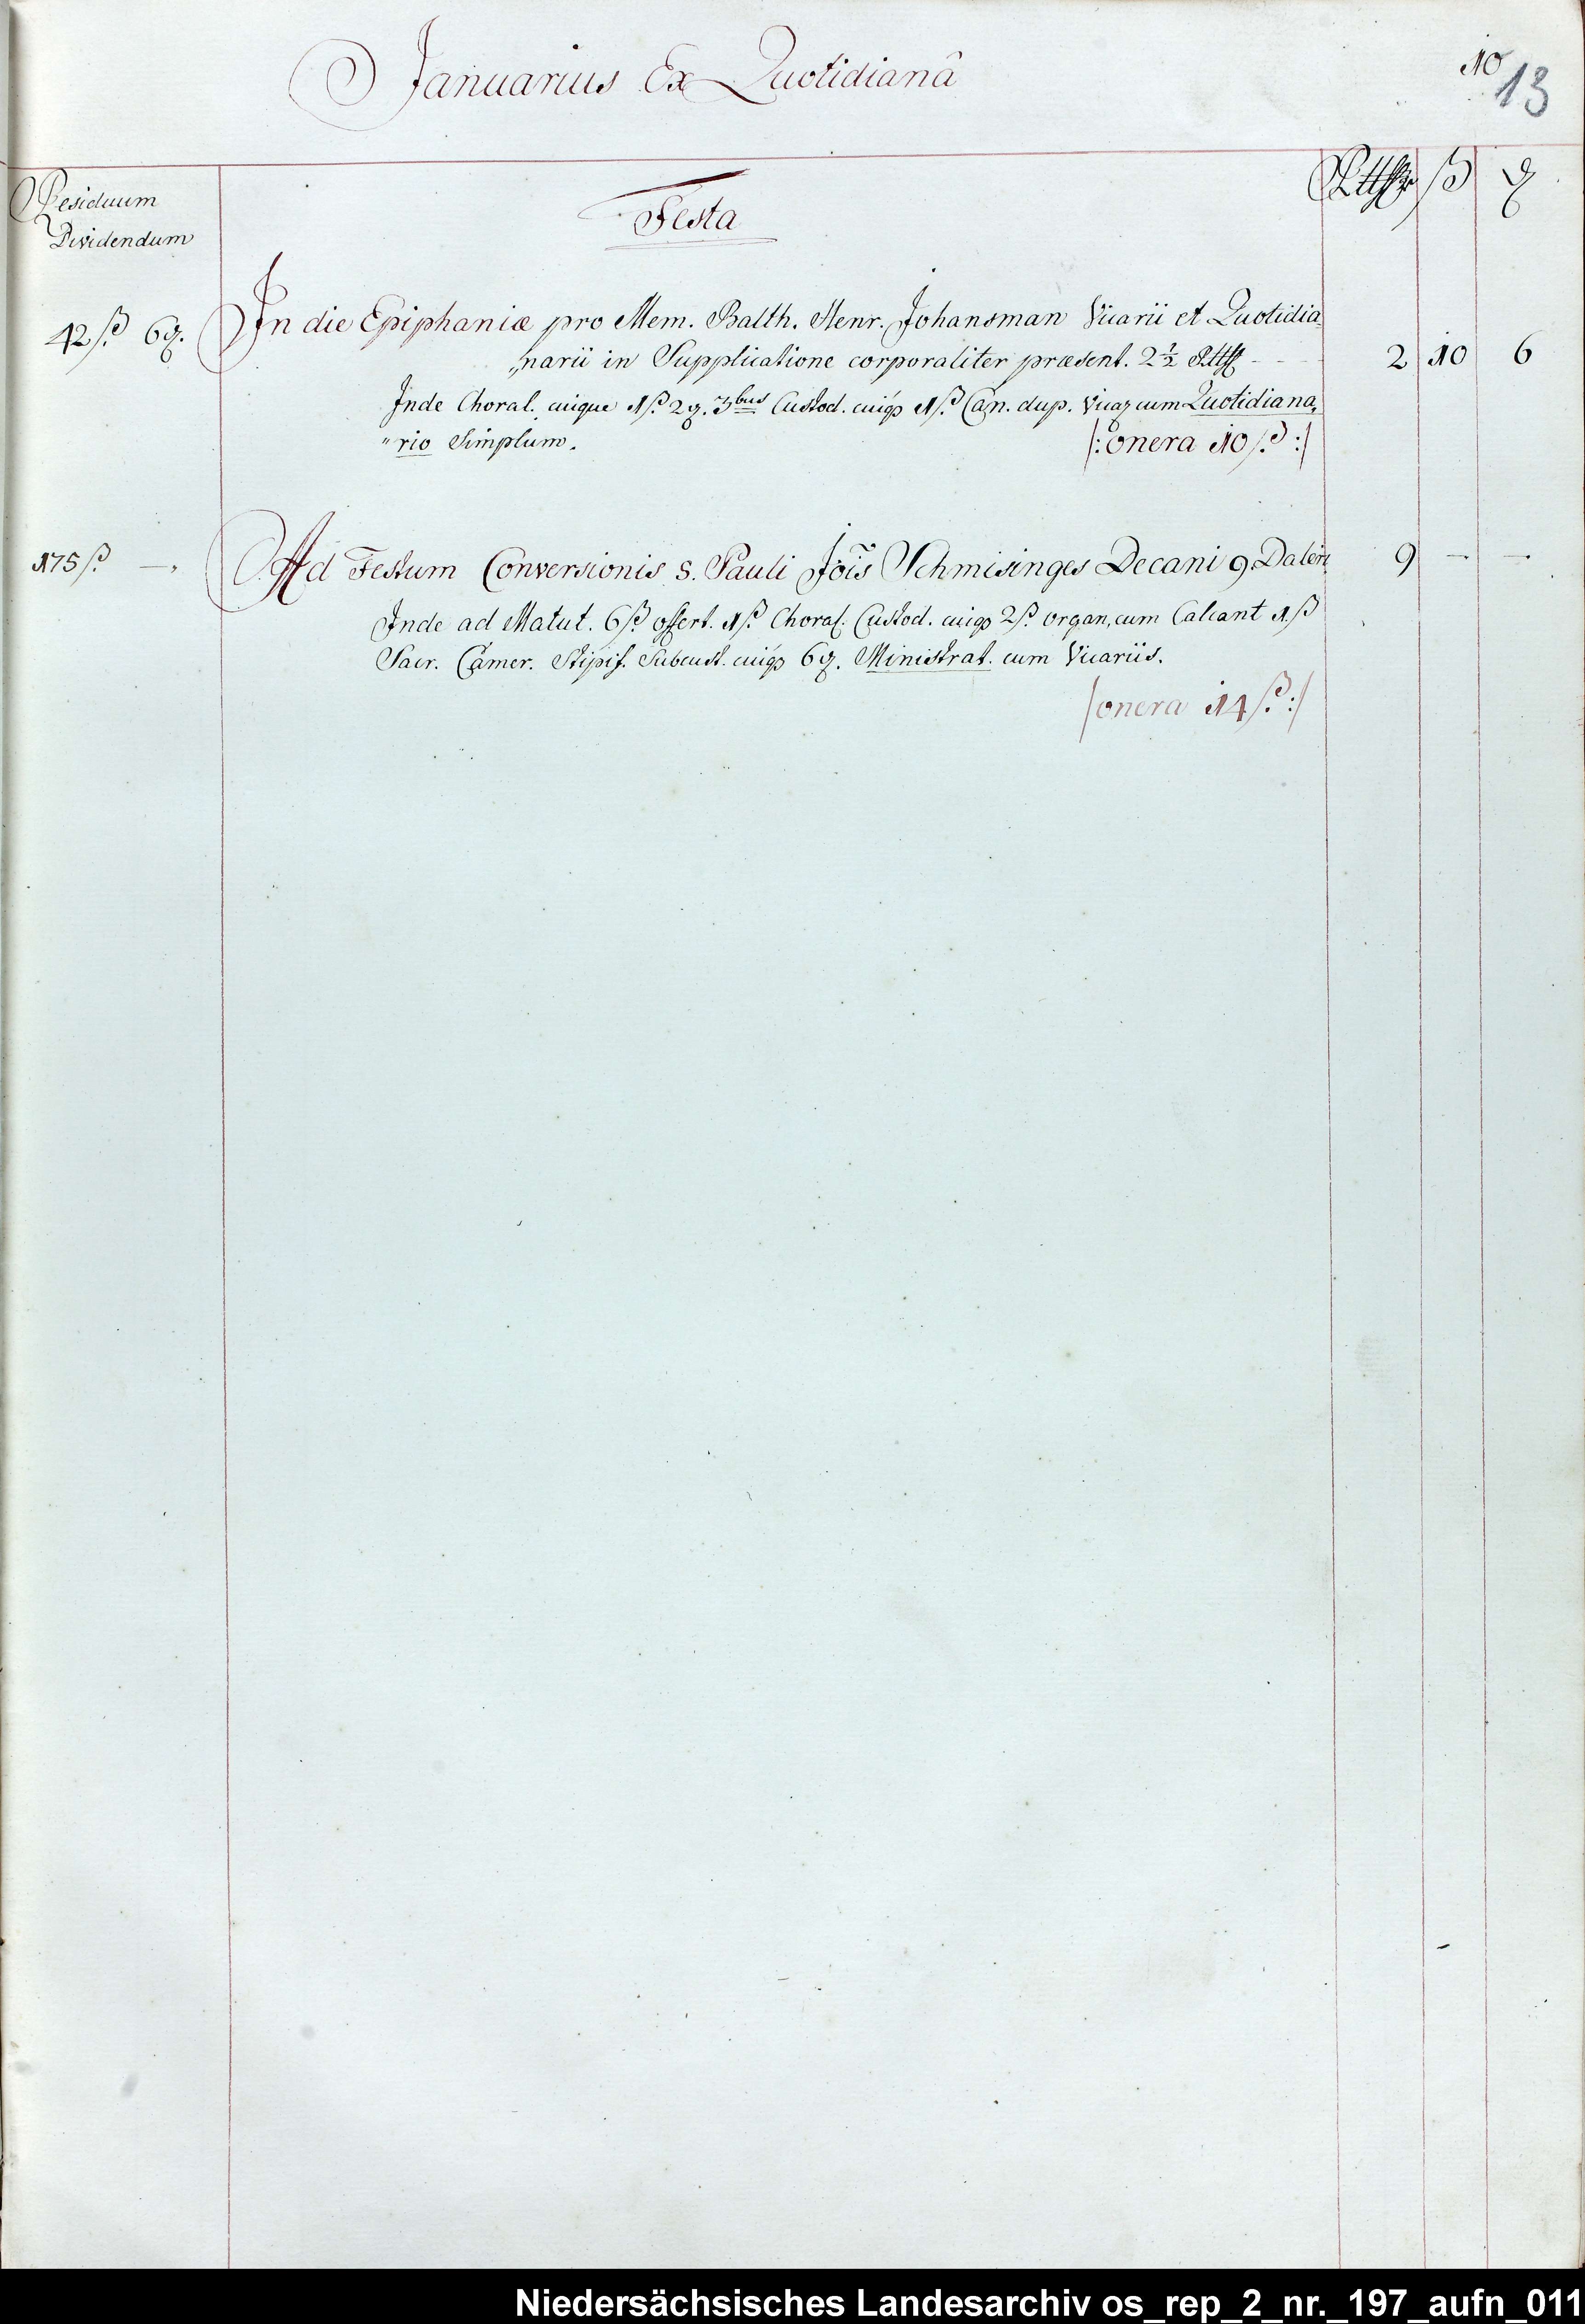 Januarius Ex Quotidianâ
10
13
Residuum
Dividendum
Festa
Rtthlr ß ₰
42 ß. 6 ₰. In die Epiphaniæ pro Mem. Balth. Henr. Johansman Vicarii et Quotidia„
„narii in Supplicatione corporaliter præsent. 2½ Rtthlr - - 2 10 6
Inde Choral. cuique 1 ß. 2 ₰. 3bus Custod. cuiqs 1 ß. Can. dup. Vicar cum Quotidiana„
„rio Simplum. /: onera 10 ß. :/
175 ß. —. Ad Festum Conversionis S. Pauli Jois Schmisinges Decani 9 Daleri 9 — —
Inde ad Matut. 6 ß. offert. 1 ß. Choral. Custod. cuiqs 2 ß. organ. cum Calcant 1. ß
Sacr. Camer. Stipif. Subcust. cuiqs 6 ₰. Ministrat. cum Vicariis.
/ onera 14 ß. :/
Niedersächsisches Landesarchiv os_rep_2_nr._197_aufn_011